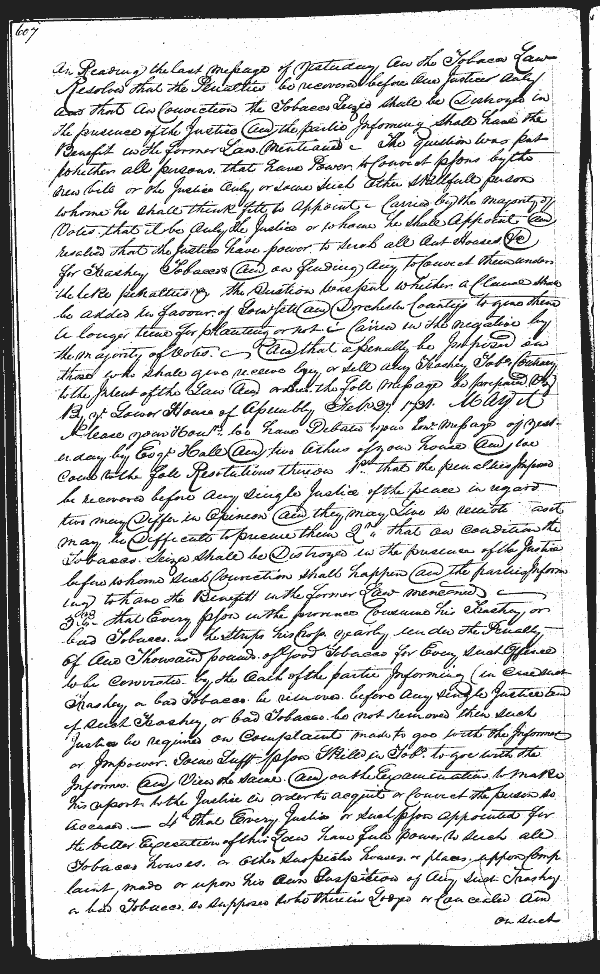 607
On Reading the last message of yesterday on the Tobacco Law
Resolved that the Penalties be recovered before one Justice only
and that on Conviction the Tobacco Seized shall be Distroyed in
the presence of the Justice and the partie Informing shall have the
Benefit in the former Law Mentioned The question was put
whether all persons that have Power to Convict psons by the
new bill or the Justice only or some such other Skillfull person
whome he shall think fitt to Appoint Carried by the majority of
Votes that it be only the Justice or whome he shall Appoint and
resolved that the Justice have power to serch all Out Houses &c
for Trashey Tobacco and on finding any to Convict them under
the like penalties & the Question was put whether a Clause shall
be added in favour of Somersett and Dorchester Countys to give them
a longer time for planting or not Carried in the negative by
the majority of Votes. And that a Penalty be Imposed on
those who shall give receive buy or sell any Trashey Tobo Contrary
to the Intent of the Law and ordered the foll message be prepared Viz
By ye Lower House of Assembly Febry 27 1731 May it
Please your Honrs to have Debated your Honrs message of yest-
erday by Colo Hall and two others of your house and we
Come to the foll Resolutions thereon 1st that the penalties Impos'd
be recovered before any single Justice of the peace in regard
two may Differ in Opinion and they may live so remote as it
may be Difficult to procure them 2d that on Condition the
Tobacco Seized shall be Distroyed in the presence of the Justice
before whome such Conviction shall happen and the partie Inform
ing to have the Benefitt in the former Law menconed
3rd that Every pson in the province Consume his Trashey or
bad Tobacco as he Strips his Crop yearly under the Penalty
of One Thousand pounds of good Tobacco for Every such Offence
to be convicted by the Oath of the partie Informing in Case such
Trashey or bad Tobacco be removed before any single Justice and
if such Trashey or bad Tobacco be not removed then such
Justice be required on Complaint made to goe with the Informer
or Impower Some Sufft pson Skilld in Tobo to goe with the
Informer and View the same and on the Examination to make
his report to the Justice in order to acquit or Convict the person so
accused 4th that Every Justice or such pson appointed for
the better Execution of this Law have full power to serch all
Tobacco houses or other suspected houses or places uppon Comp
laint made or upon his own Suspition of any such Trashey
or bad Tobacco so supposed to be therein Lodged or Concealed and
on such